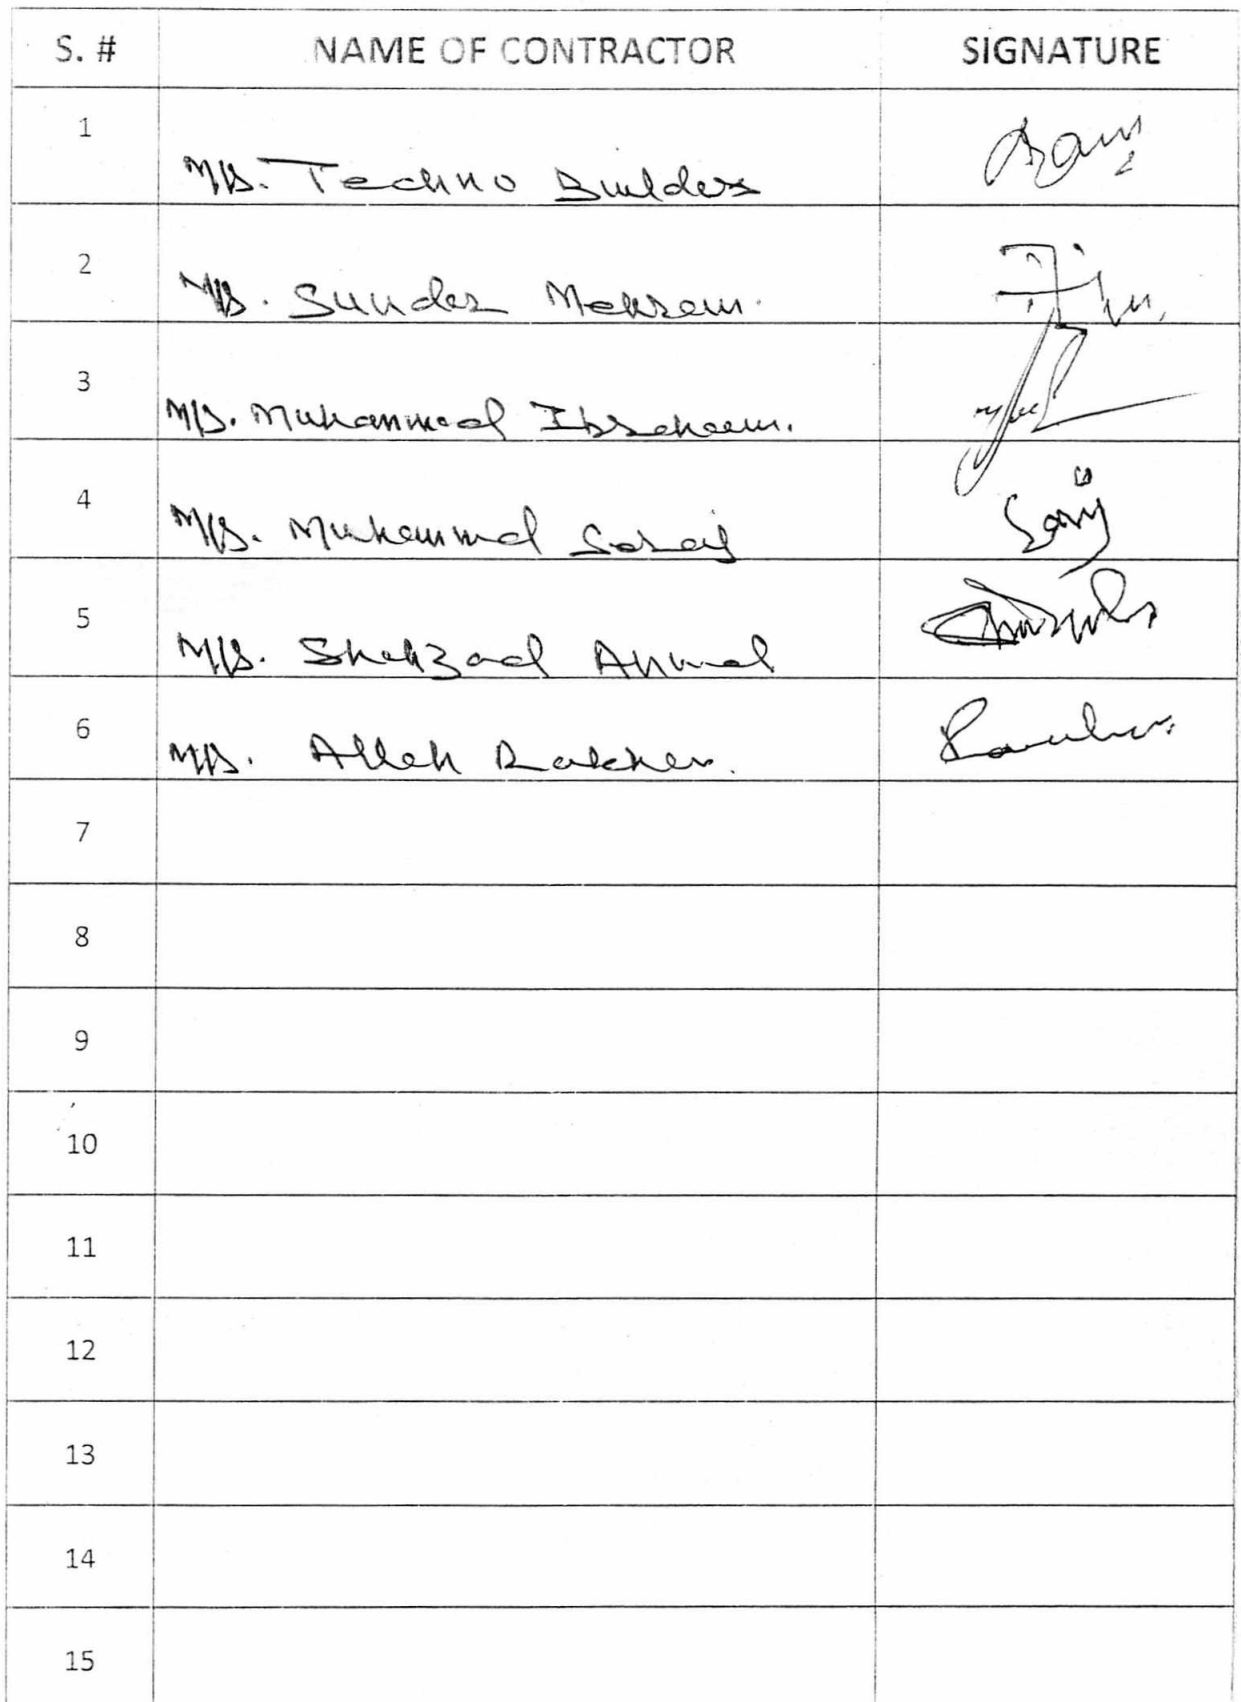 S. # NAME OF CONTRACTOR SIGNATURE
1 M/s. Techno Builders
2 M/s. Sunder Mehram.
3 M/s. Muhammad Ibraheem.
4 M/s. Muhammad
5 M/s. Shahzad Ahmad
6 M/s. Allah
7
8
9
10
11
12
13
14
15